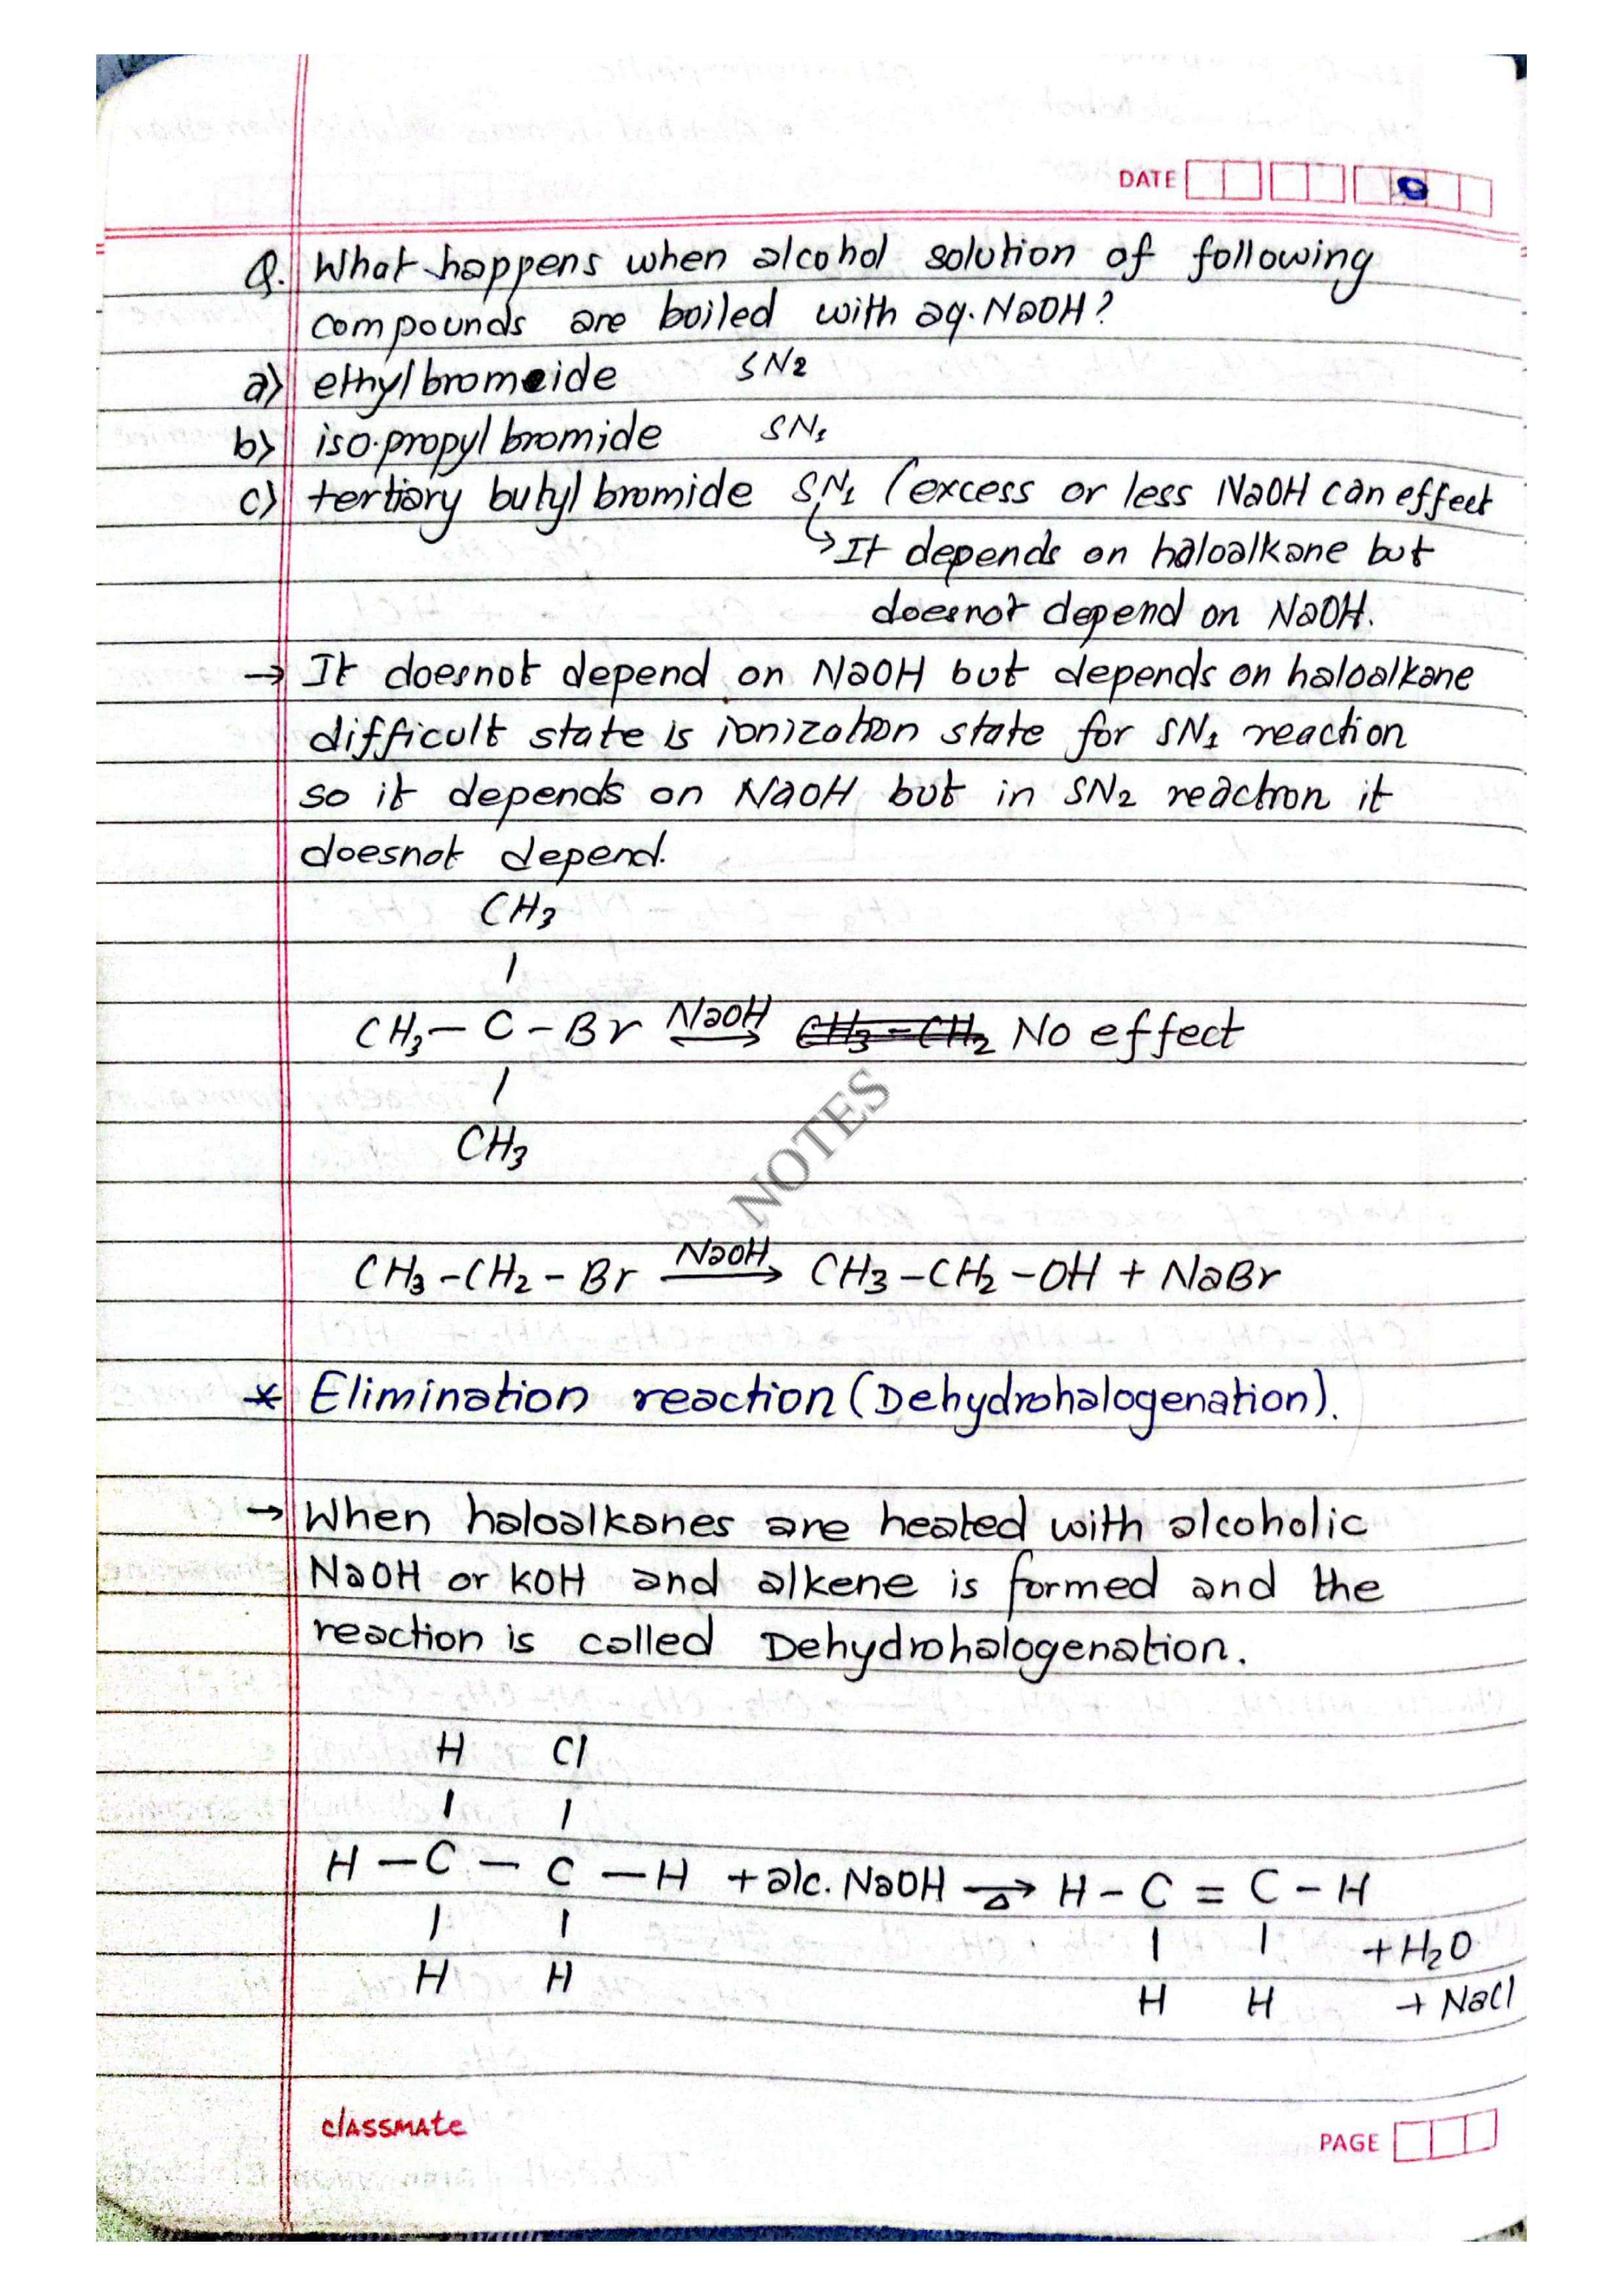 DATE
Q. What happens when alcohol solution of following
compounds are boiled with aq. NaOH?
a) ethyl bromide SN2
b) iso-propyl bromide SN1
c) tertiary butyl bromide SN1 (excess or less NaOH can effect
↳ It depends on haloalkane but
doesnot depend on NaOH.
→ It doesnot depend on NaOH but depends on haloalkane
difficult state is ionization state for SN1 reaction
so it depends on NaOH but in SN2 reaction it
doesnot depend.
CH3
|
CH3 - C - Br NaOH → CH3 - CH2 No effect
|
CH3
NOTES
CH3 - CH2 - Br NaOH → CH3 - CH2 - OH + NaBr
* Elimination reaction (Dehydrohalogenation).
→ When haloalkanes are heated with alcoholic
NaOH or KOH and alkene is formed and the
reaction is called Dehydrohalogenation.
H Cl
| |
H - C - C - H + alc. NaOH →Δ H - C = C - H
| | | | + H2O
H H H H + NaCl
classmate
PAGE